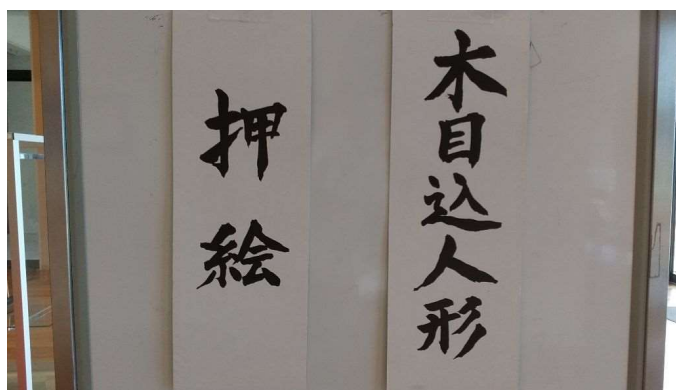 木目込人形
押絵